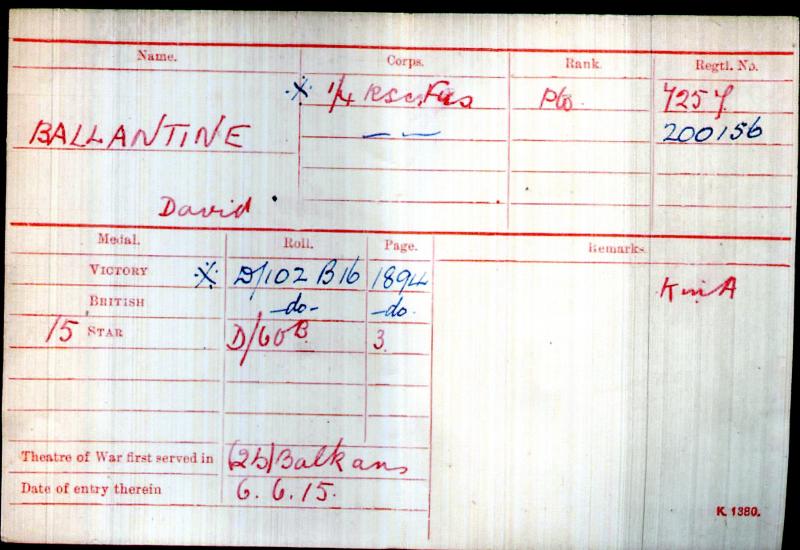 Name. Corps. Rank. Regtl. No.
※ 1/4 R Sc Fus Pte 7257
BALLANTINE — — 200156
David
Medal. Roll. Page. Remarks
VICTORY ※ D/102 B16 1894 K in A
BRITISH -do- -do-
15 STAR D/60B 3
Theatre of War first served in (2b) Balkans
Date of entry therein 6.6.15.
K. 1380.